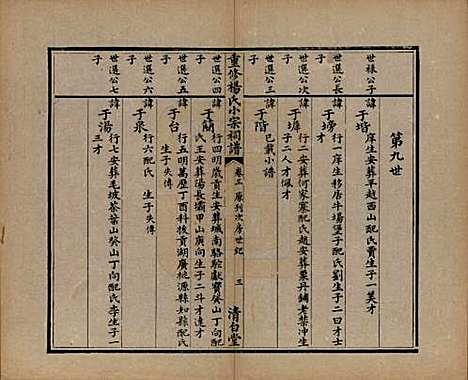 第九世
世祿公子諱于堦庠生安葬旱越西山配氏賈生子一芙才
世選公長子諱于塝庠生移居牛塲堡子配氏劉生子二曰才士才
世選公次子諱于墀行二安葬何家寨配氏趙安葬栗丹鋪老荣冲生子二人才佩才
世選公三子諱于階已載小譜
重修楊氏小宗祠譜
卷三原刊次房世紀
三
清白堂
世選公四子諱于蘭行四明歲貢生安葬城南駱駝獻寳癸山丁向配氏王安葬湯長壩甲山庚向生子二斗才遠才
世選公五子諱于台行五明萬歷丁酉科後貢湖廣桃源縣知縣配氏生子失傳
世選公六子諱于泉行六配氏生子失傳
世選公七子諱于湯行七安葬毛坡茶葉山癸山丁向配氏李生子一三才